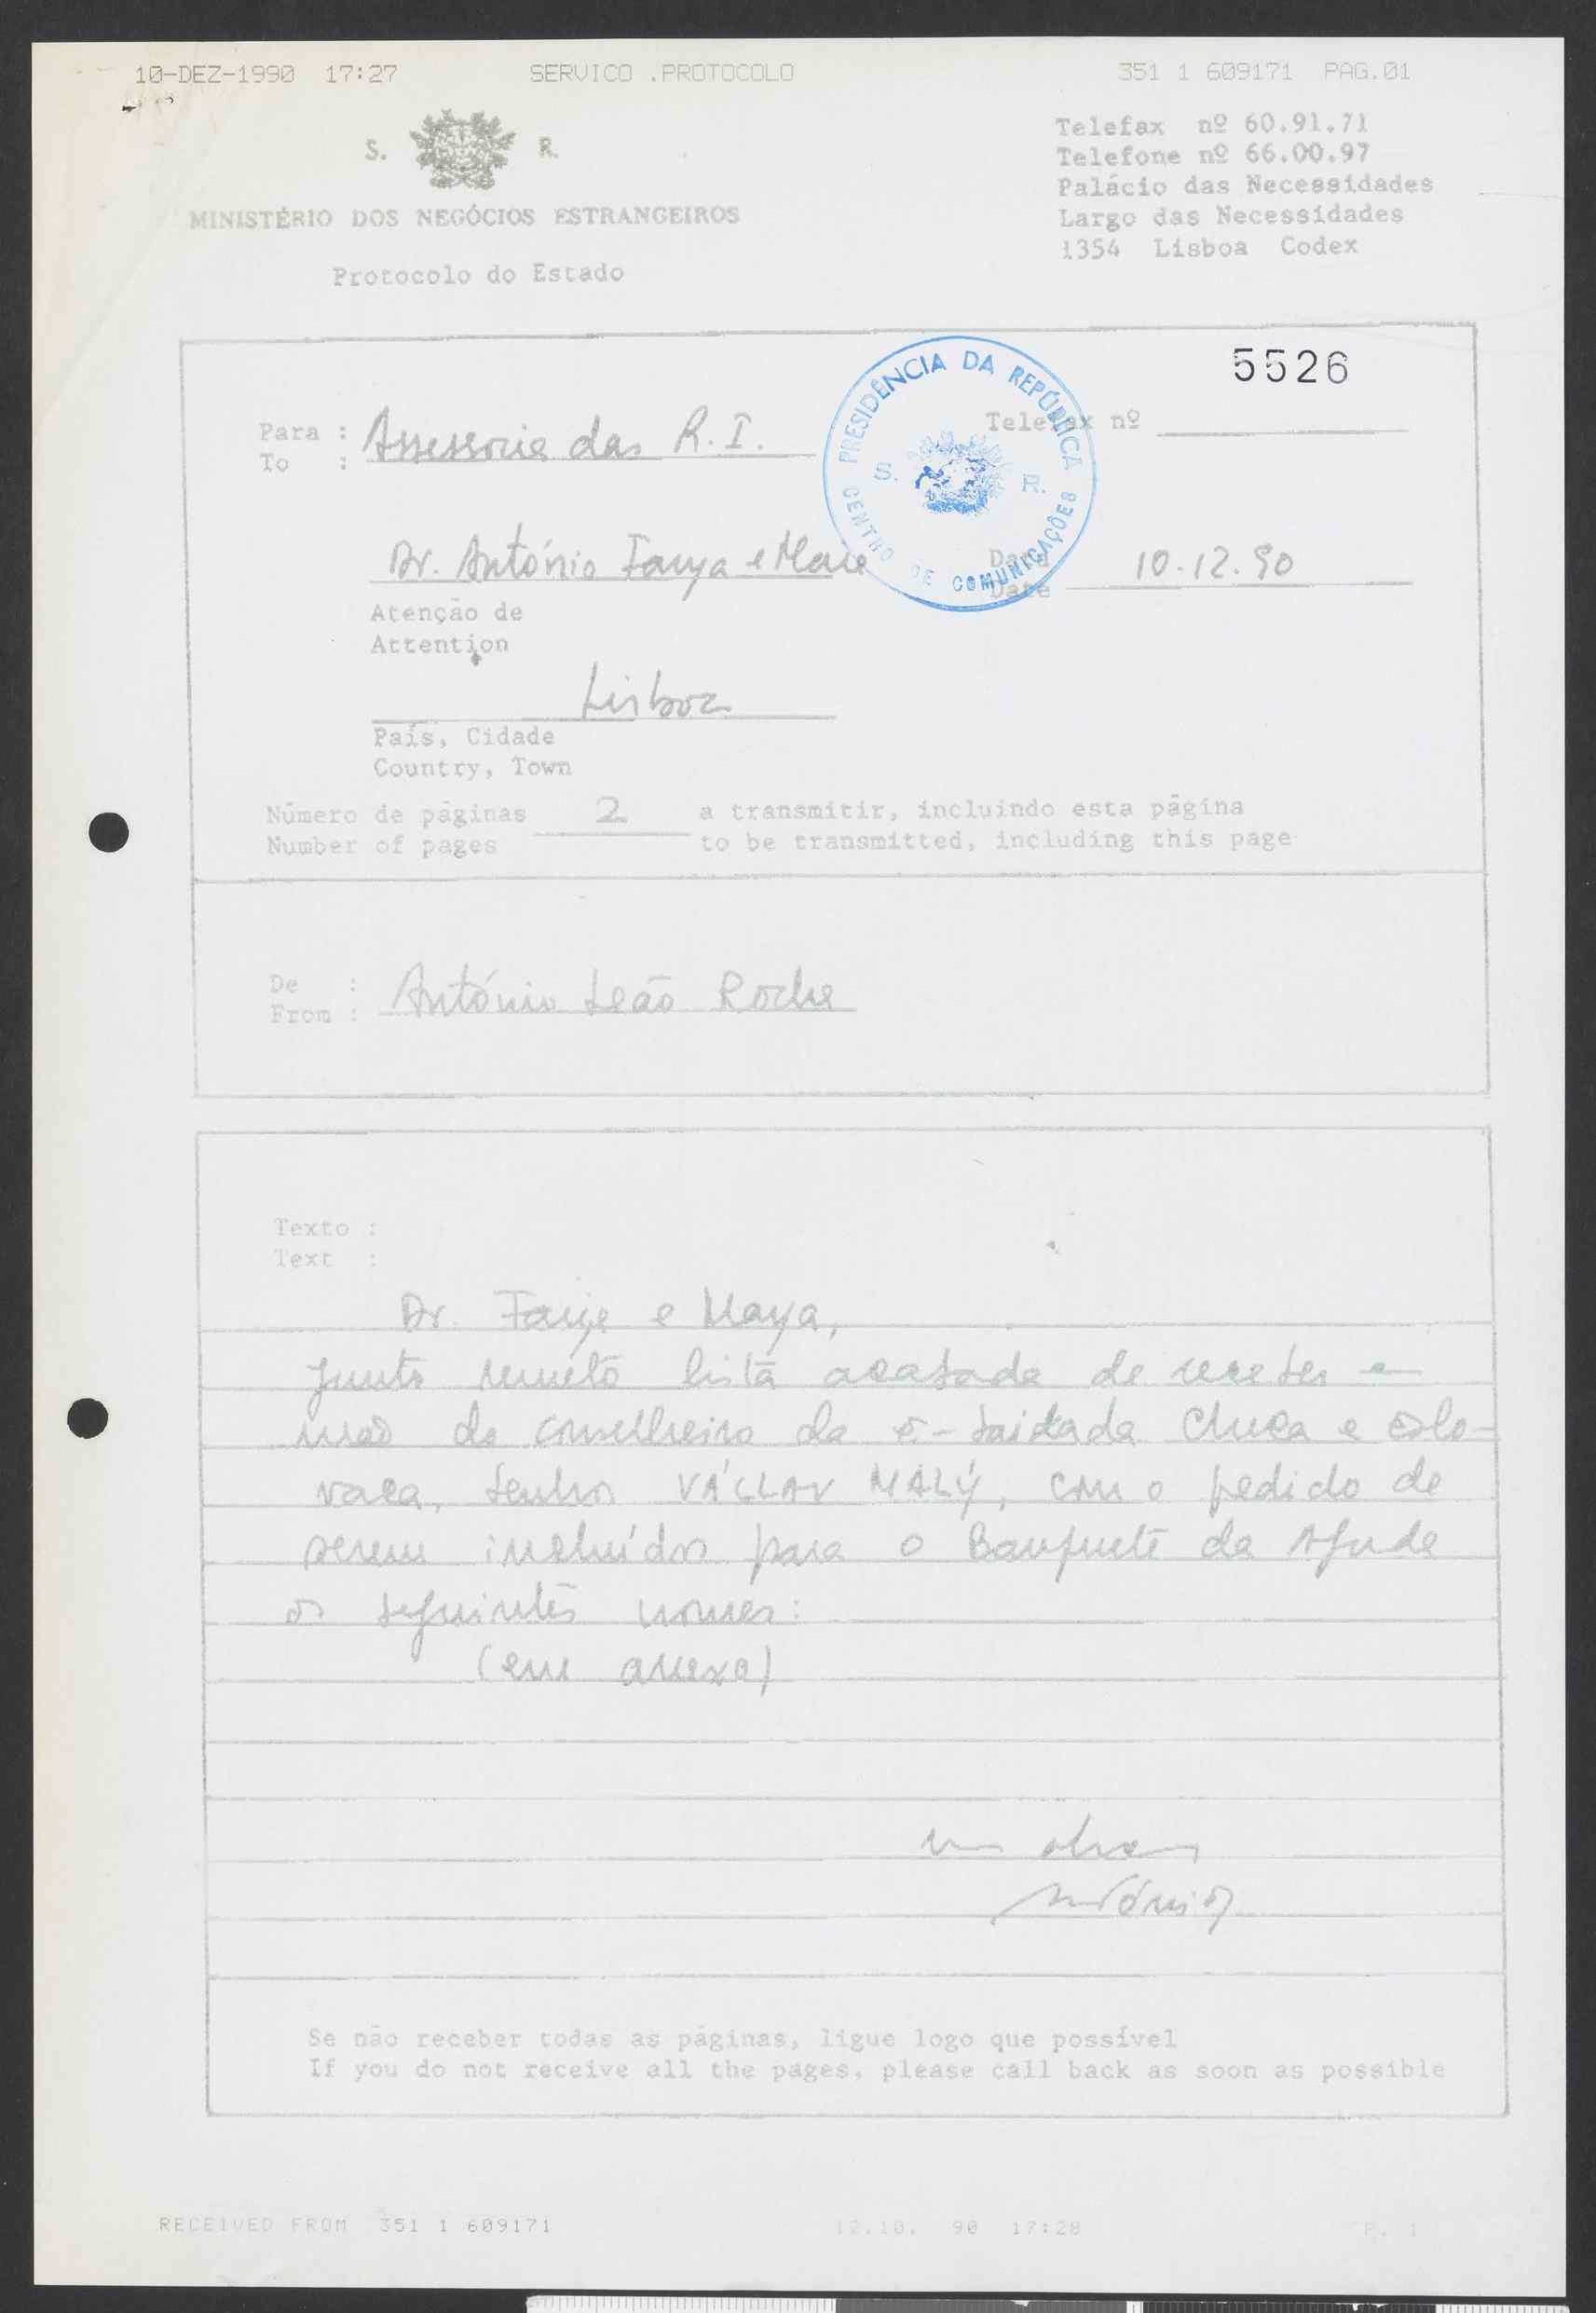 10-DEZ-1990 17:27 SERVICO .PROTOCOLO 351 1 609171 PAG.01
S. R.
MINISTÉRIO DOS NEGÓCIOS ESTRANGEIROS
Protocolo do Estado
Telefax nº 60.91.71
Telefone nº 66.00.97
Palácio das Necessidades
Largo das Necessidades
1354 Lisboa Codex
5526
PRESIDÊNCIA DA REPÚBLICA
S. R.
CENTRO DE COMUNICAÇÕES
Para : Assessoria das R. I.
To :
Telefax nº
Dr. António Faria e Maia
Data 10.12.90
Date
Atenção de
Attention
Lisboa
País, Cidade
Country, Town
Número de páginas 2 a transmitir, incluindo esta página
Number of pages to be transmitted, including this page
De :
From : António Leão Rocha
Texto :
Text :
Dr. Faria e Maya,
Junto remeto lista acabada de receber em
mão do conselheiro da Embaixada Checa e Eslo-
vaca, Senhor VÁCLAV MALÝ, com o pedido de
serem incluídos para o Banquete da Ajuda
os seguintes nomes:
(em anexo)
António
Se não receber todas as páginas, ligue logo que possível
If you do not receive all the pages, please call back as soon as possible
RECEIVED FROM 351 1 609171 12.10. 90 17:28 P. 1